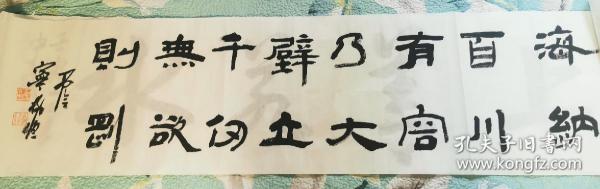 海納
百川
有容
乃大
壁立
千仞
無欲
則剛
孔夫子旧书网
www.kongfz.com